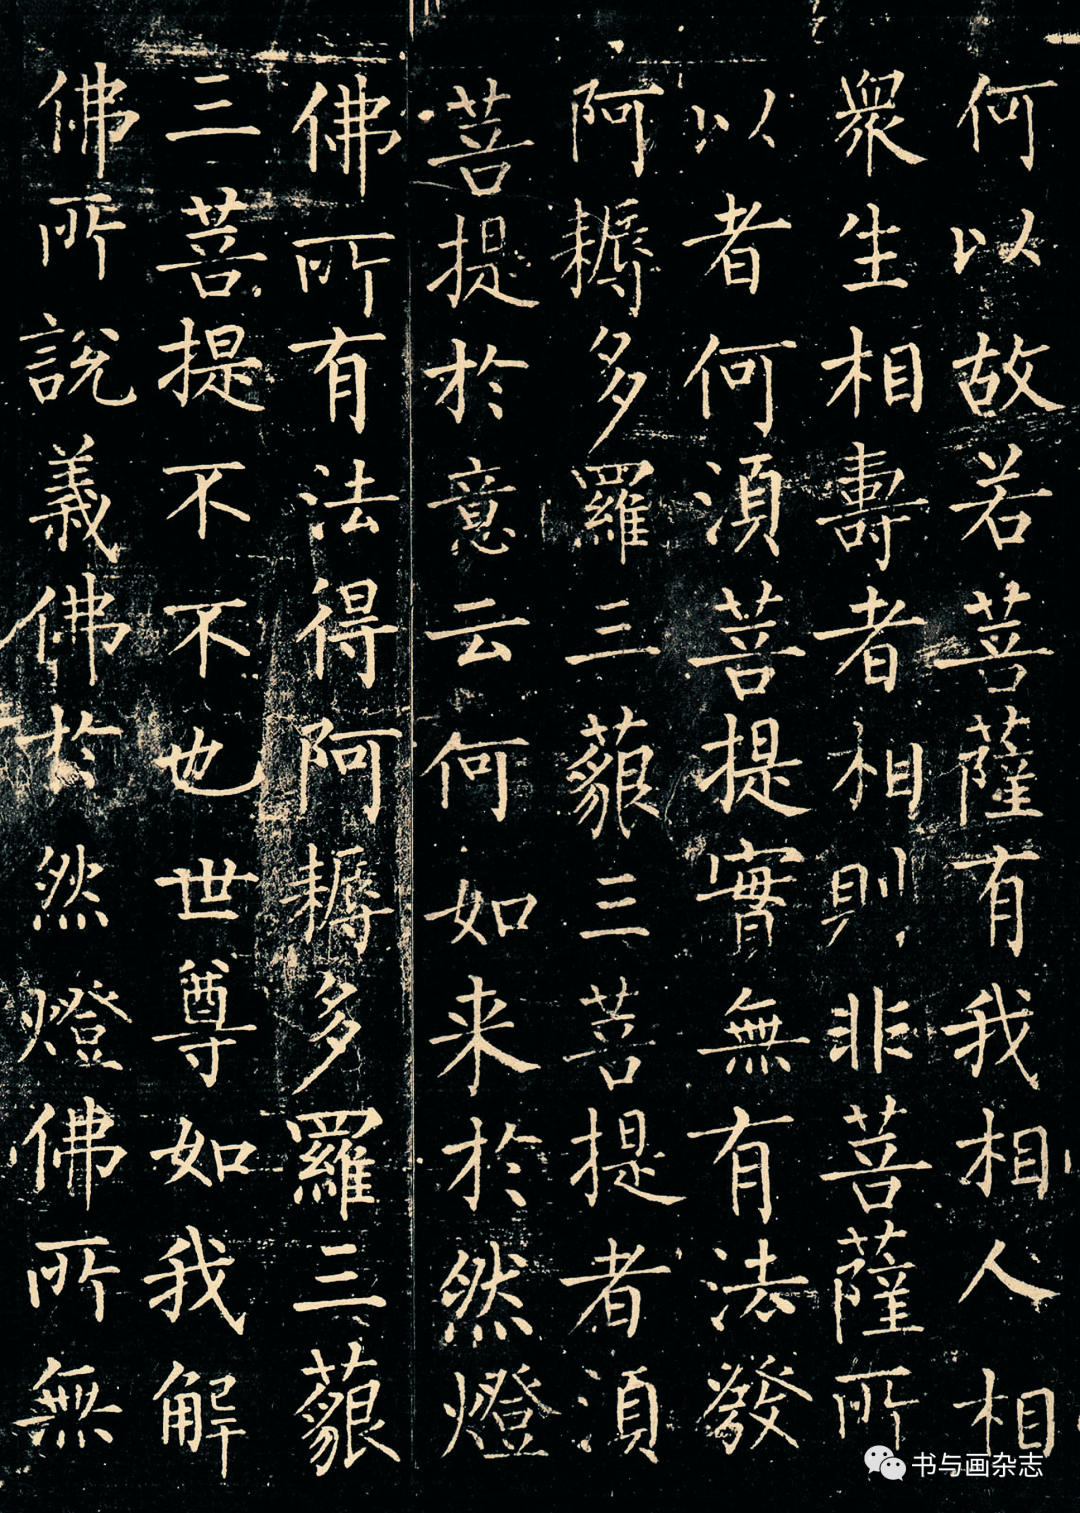 何以故若菩薩有我相人相
衆生相壽者相則非菩薩所
以者何須菩提實無有法發
阿耨多羅三藐三菩提者須
菩提於意云何如来於然燈
佛所有法得阿耨多羅三藐
三菩提不不也世尊如我解
佛所說義佛於然燈佛所無
书与画杂志